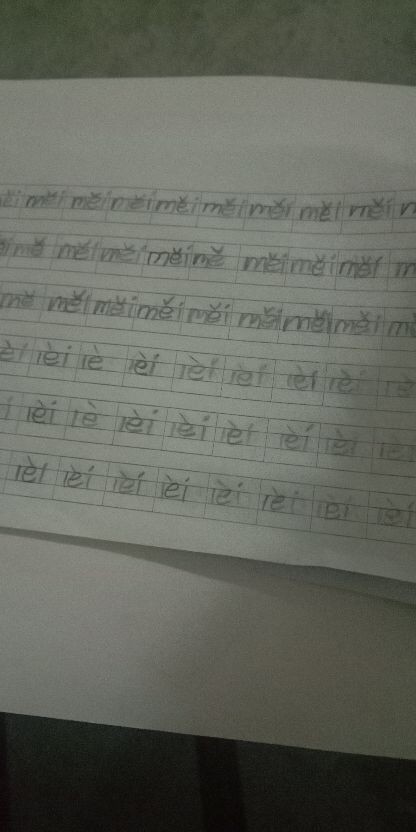 měi měi měi měi měi měi měi měi měi
mě měi měi měi mě měi měi měi
mě měi měi měi měi měi měi měi
lèi lè lèi lèi lèi lèi lèi
lèi lè lèi lèi lèi lèi lèi
lèi lèi lèi lèi lèi lèi lèi lèi